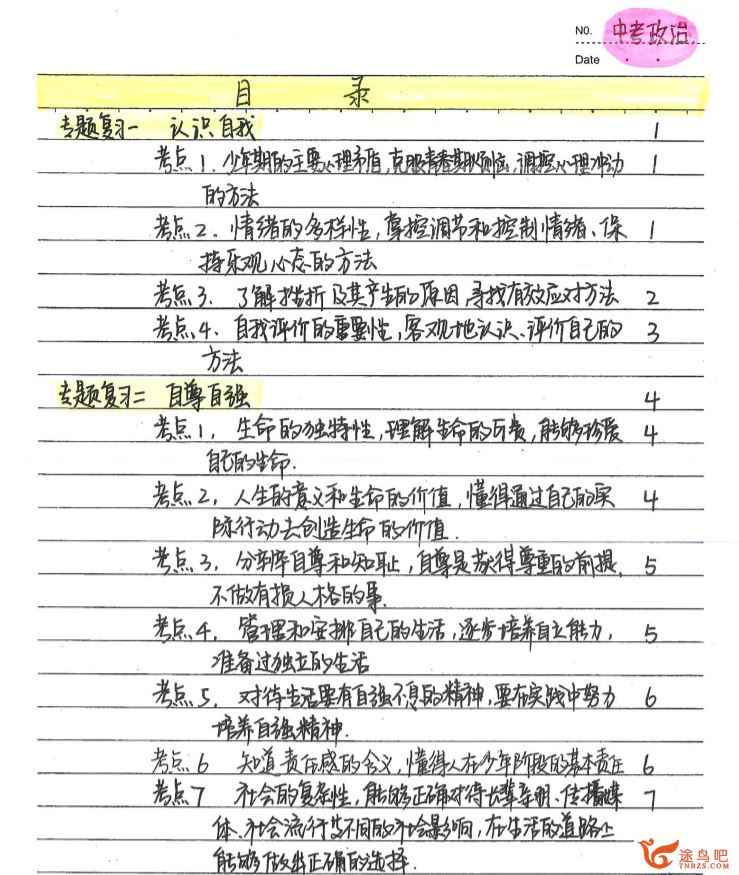 NO. 中考政治
Date
目 录
专题复习一 认识自我 1
考点1. 少年期的主要心理矛盾,克服青春期烦恼,调控心理冲动 1
的方法
考点2. 情绪的多样性,掌控调节和控制情绪、保 1
持乐观心态的方法
考点3. 了解挫折及其产生的原因,寻找有效应对方法 2
考点4. 自我评价的重要性,客观地认识、评价自己的 3
方法
专题复习二 自尊自强 4
考点1. 生命的独特性,理解生命的可贵,能够珍爱 4
自己的生命.
考点2. 人生的意义和生命的价值,懂得通过自己的实 4
际行动去创造生命的价值.
考点3. 分辨自尊和知耻,自尊是获得尊重的前提, 5
不做有损人格的事.
考点4. 管理和安排自己的生活,逐步培养自立能力, 5
准备过独立的生活
考点5. 对待生活要有自强不息的精神,要在实践中努力 6
培养自强精神.
考点6 知道责任感的含义,懂得人在少年阶段的基本责任 6
考点7 社会的复杂性,能够正确对待长辈亲朋、传播媒 7
体、社会流行等不同的社会影响,在生活的道路上
能够做出正确的选择.
途鸟吧
TNBZS.COM